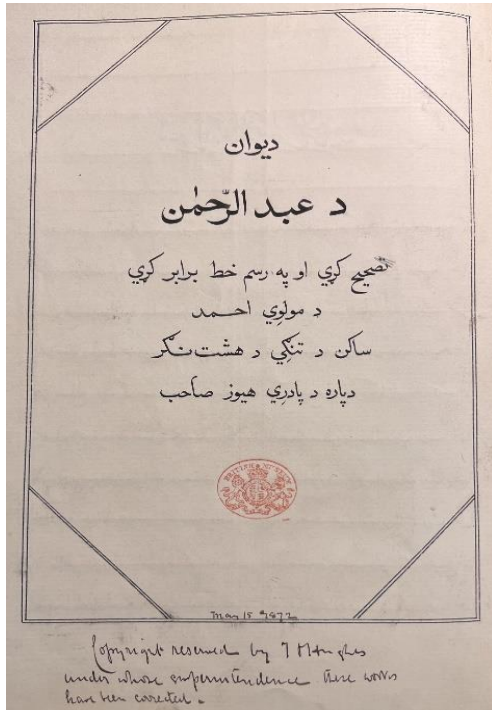 ديوان
د عبد الرّحمٰن
تصحيح کړي او په رسم خط برابر کړي
د مولوي احمد
ساکن د تنګي د هشت نګر
دپاره د پادري هيوز صاحب
BRITISH MUSEUM
May 15 1872
Copyright reserved by T P Hughes
under whose superintendence these works
have been corrected.